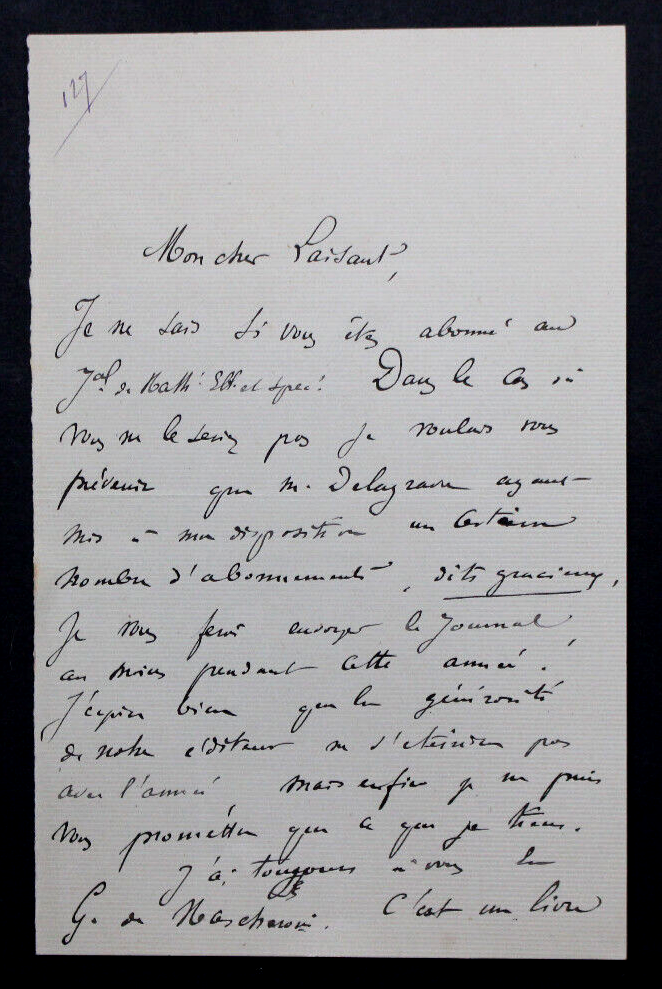 127
Mon cher Laisant,
Je ne sais si vous êtes abonné au
Jal de Math: El. et spec. Dans le cas où
vous ne le seriez pas je voulais vous
prévenir que M. Delagrave ayant
mis à ma disposition un certain
nombre d'abonnements, dits gracieux,
je vous ferai envoyer le Journal,
au moins pendant cette année.
J'espère bien que la générosité
de notre éditeur ne s'éteindra pas
avec l'année mais enfin je ne puis
vous promettre que ce que je tiens.
J'ai toujours à vous la
G. de Mascheroni. C'est un livre